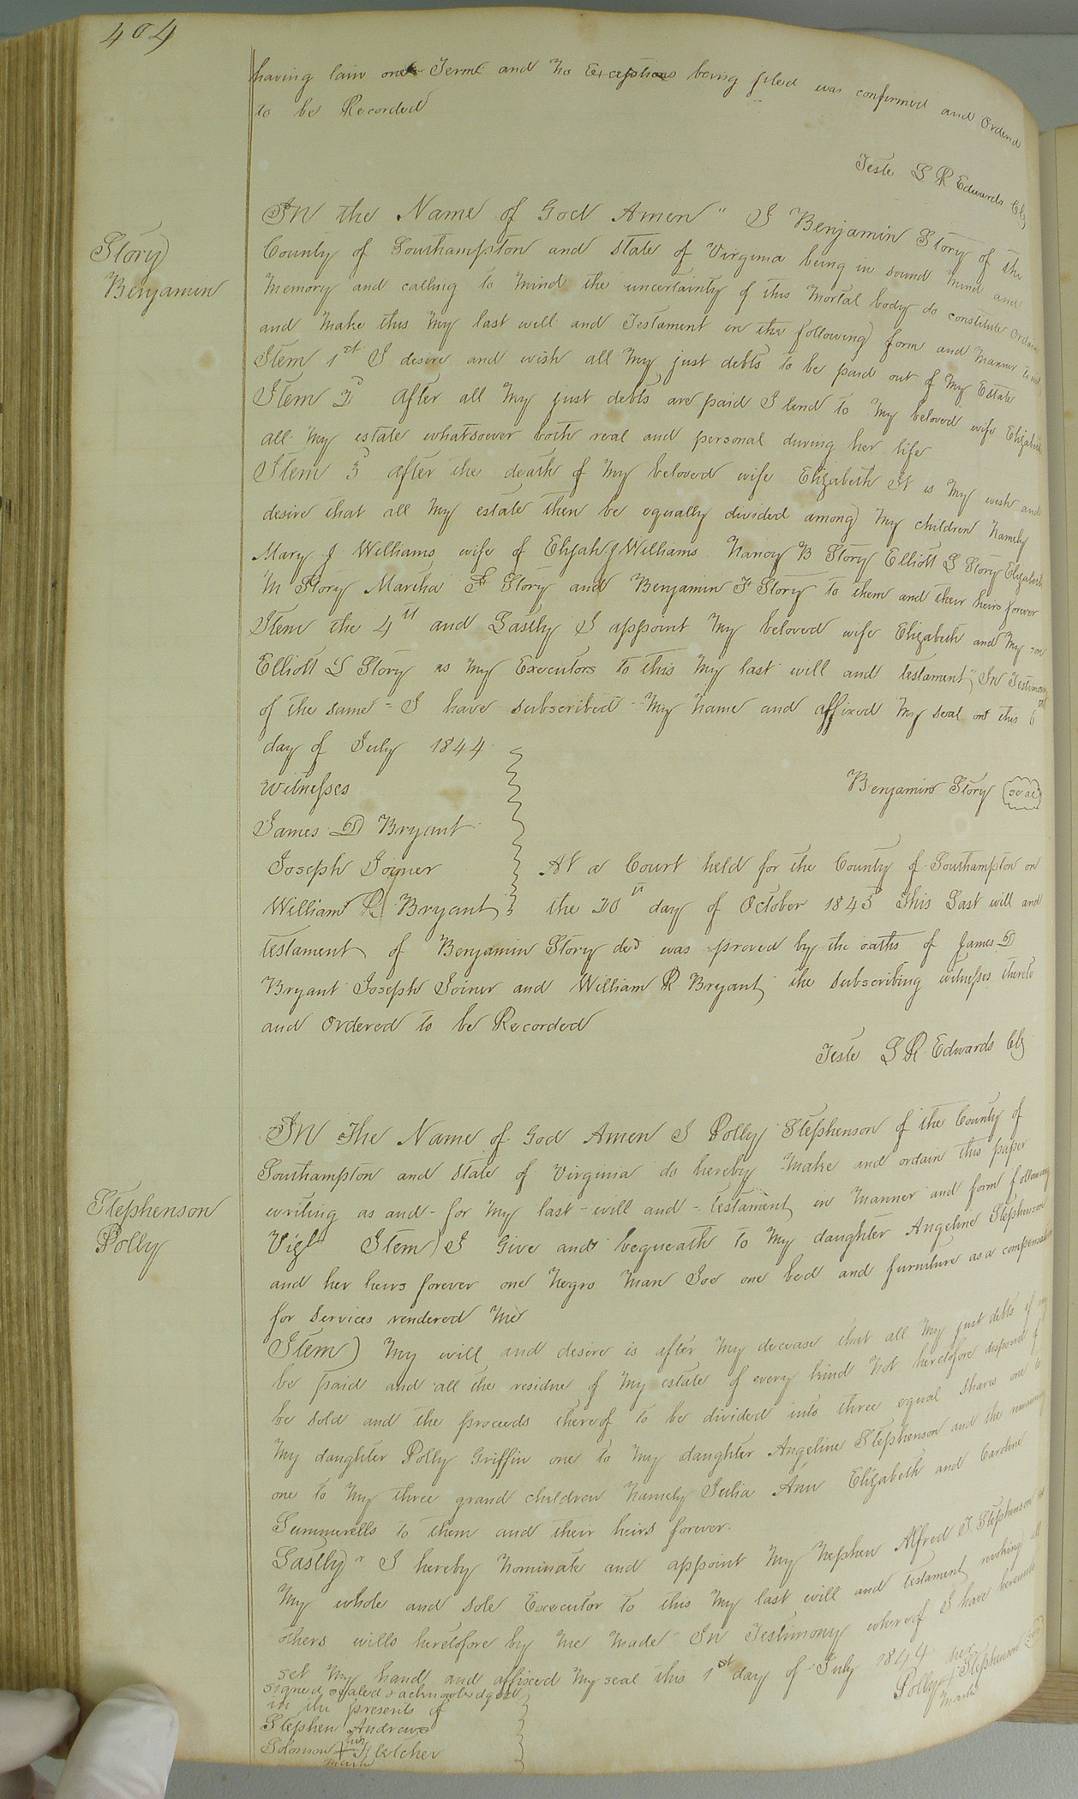 404
having lain one Term and No Exceptions being filed was confirmed and Ordered
to be Recorded
Teste L R Edwards Clk
Story
Benjamin
In the Name of God Amen" I Benjamin Story of the
County of Southampton and State of Virginia being in sound mind and
memory and calling to mind the uncertainty of this mortal body do constitute Ordain
and make this my last will and Testament in the following form and manner to wit
Item 1st I desire and wish all my just debts to be paid out of my Estate
Item 2d After all my just debts are paid I lend to my beloved wife Elizabeth
all my estate whatsoever both real and personal during her life
Item 3d after the death of my beloved wife Elizabeth It is my wish and
desire that all my estate then be equally divided among my children Namely
Mary J Williams wife of Elijah J Williams Nancy B Story Elliott L Story Elizabeth
M Story Martha F Story and Benjamin F Story to them and their heirs forever
Item the 4th and Lastly I appoint my beloved wife Elizabeth and my son
Elliott L Story as my Executors to this my last will and testament, In Testimony
of the same - I have subscribed my name and affixed my seal on this 6th
day of July 1844
Witnesses
Benjamin Story (seal)
James D Bryant
Joseph Joiner
William R Bryant
At a Court held for the County of Southampton on
the 20th day of October 1845 This Last will and
testament of Benjamin Story decd was proved by the oaths of James D
Bryant Joseph Joiner and William R Bryant the subscribing witnesses thereto
and Ordered to be Recorded
Teste L R Edwards Clk
Stephenson
Polly
In The Name of God Amen I Polly Stephenson of the County of
Southampton and State of Virginia do hereby make and ordain this paper
writing as and - for my last - will and - testament in manner and form following
Vizt Item) I Give and bequeath to my daughter Angeline Stephenson
and her heirs forever one Negro Man Joe one bed and furniture as a compensation
for services rendered me
Item) My will and desire is after my decease that all my just debts if any
be paid and all the residue of my estate of every kind not heretofore disposed of
be sold and the proceeds thereof to be divided into three equal shares one to
my daughter Polly Griffin one to my daughter Angeline Stephenson and the remaining
one to my three grand children Namely Julia Ann Elizabeth and Caroline
Summerells to them and their heirs forever.
Lastly" I hereby nominate and appoint my Nephew Alfred J Stephenson as
my whole and sole Executor to this my last will and testament revoking all
others wills heretofore by me made In Testimony whereof I have hereunto
set my hand and affixed my seal this 1st day of July 1844
her
Polly + Stephenson (seal)
mark
Signed sealed & acknowledged
in the presents of
Stephen Andrews
his
Solomon + Fletcher
mark